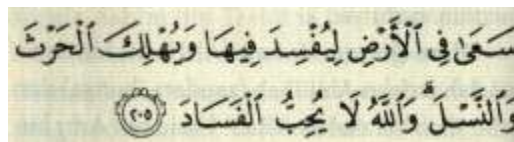 سَعَىٰ فِي ٱلْأَرْضِ لِيُفْسِدَ فِيهَا وَيُهْلِكَ ٱلْحَرْثَ
وَٱلنَّسْلَ ۗ وَٱللَّهُ لَا يُحِبُّ ٱلْفَسَادَ ٢٠٥